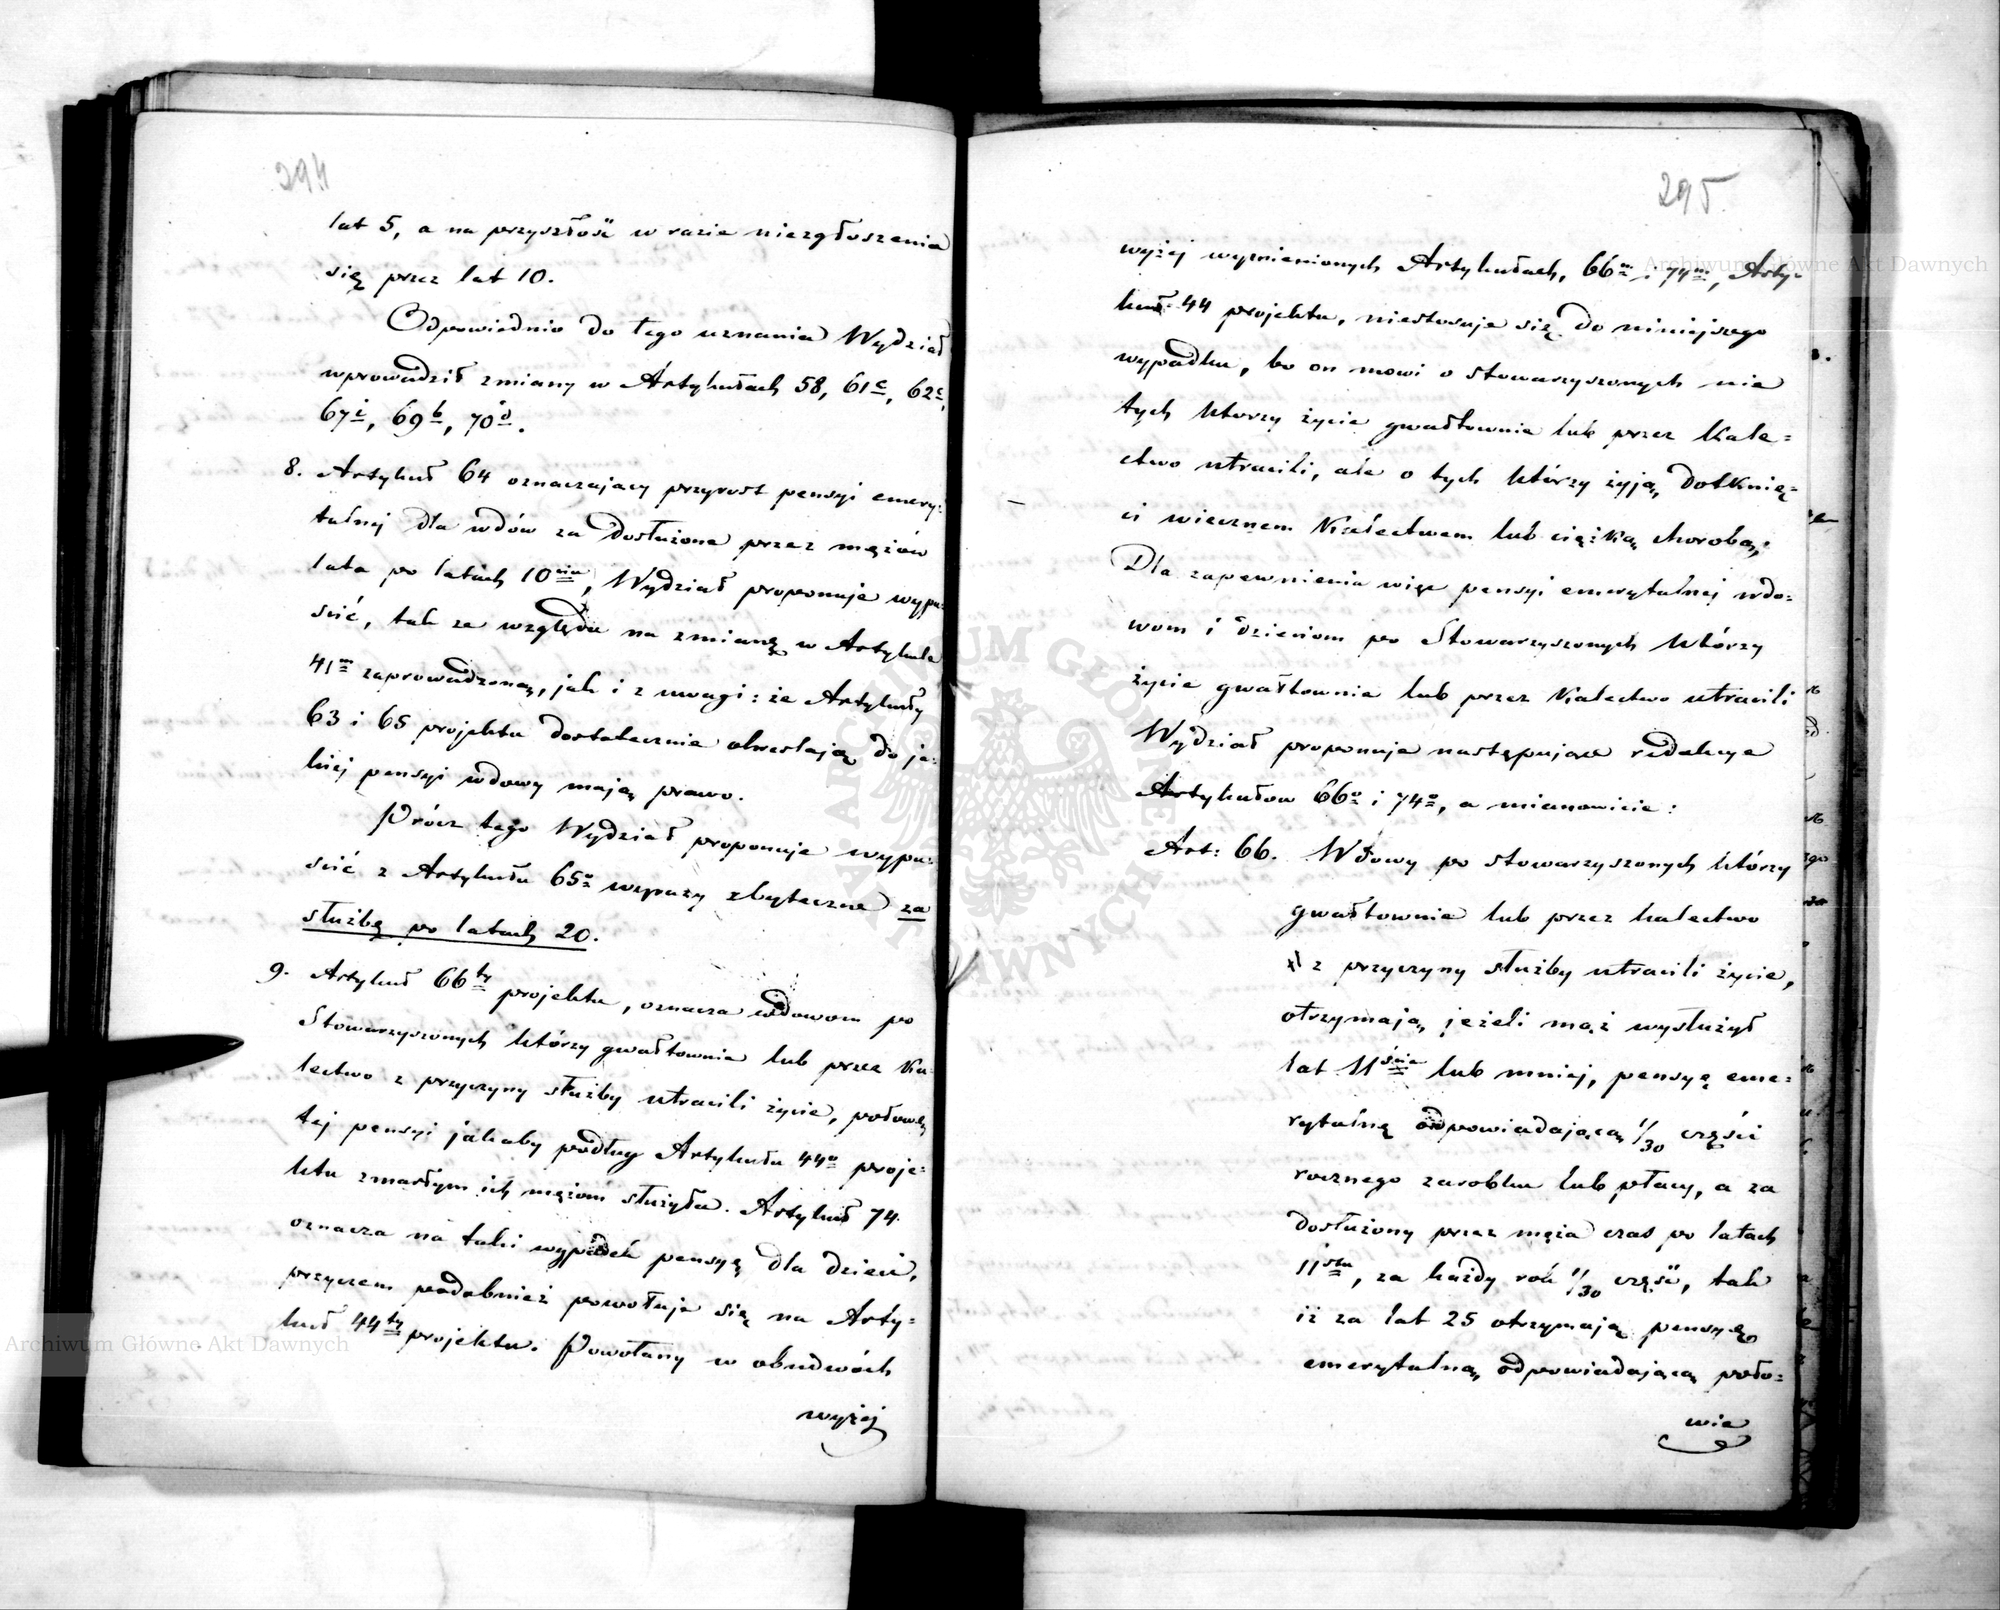 294
lat 5, a na przyszłość w razie niezgłoszenia
się przez lat 10.
Odpowiednio do tego uznania Wydział
wprowadził zmiany w Artykułach 58, 61c, 62c,
67i, 69b, 70d.
8. Artykuł 64 oznaczający przyrost pensyi emery:
talnej dla wdów za dosłużone przez mężów
lata po latach 10ciu, Wydział proponuje wypu:
ścić, tak ze względu na zmianę w Artykule
41m zaprowadzoną, jak i z uwagi: że Artykuły
63 i 65 projektu dostatecznie określają do ja:
kiej pensyi wdowy mają prawo.
Prócz tego Wydział proponuje wypu:
ścić z Artykułu 65o wyrazy zbyteczne za
służbę po latach 20.
9. Artykuł 66ty projektu, oznacza wdowom po
Stowarzyszonych którzy gwałtownie lub przez Ka:
lectwo z przyczyny służby utracili życie, połowę
tej pensyi jakaby podług Artykułu 44o proje:
ktu zmarłym ich mężom służyła. Artykuł 74.
oznacza na taki wypadek pensyę dla dzieci,
przyczem podobnież powołuje się na Arty:
kuł 44ty projektu. Powołany w obudwóch
wyżej
295.
wyżej wymienionych Artykułach, 66m i 74m, Arty:
kuł 44 projektu, niestosuje się do niniejszego
wypadku, bo on mowi o stowarzyszonych nie
tych ktorzy życie gwałtownie lub przez Kale:
ctwo utracili, ale o tych którzy żyją, dotknię:
ci wiecznem Kalectwem lub ciężką chorobą;
Dla zapewnienia więc pensyi emerytalnej wdo:
wom i dzieciom po Stowarzyszonych którzy
życie gwałtownie lub przez Kalectwo utracili
Wydział proponuje następujące redakcye
Artykułow 66o i 74o, a mianowicie:
Art: 66. Wdowy po stowarzyszonych którzy
gwałtownie lub przez kalectwo
z przyczyny służby utracili życie,
otrzymają, jeżeli mąż wysłużył
lat 11ście lub mniej, pensyę eme:
rytalną odpowiadającą 11/30 części
rocznego zarobku lub płacy, a za
dosłużony przez męża czas po latach
11stu, za każdy rok 1/30 część, tak
iż za lat 25 otrzymają pensyę
emerytalną, odpowiadającą poło:
wie
Archiwum Główne Akt Dawnych
Archiwum Główne Akt Dawnych
ARCHIWUM GŁÓWNE AKT DAWNYCH